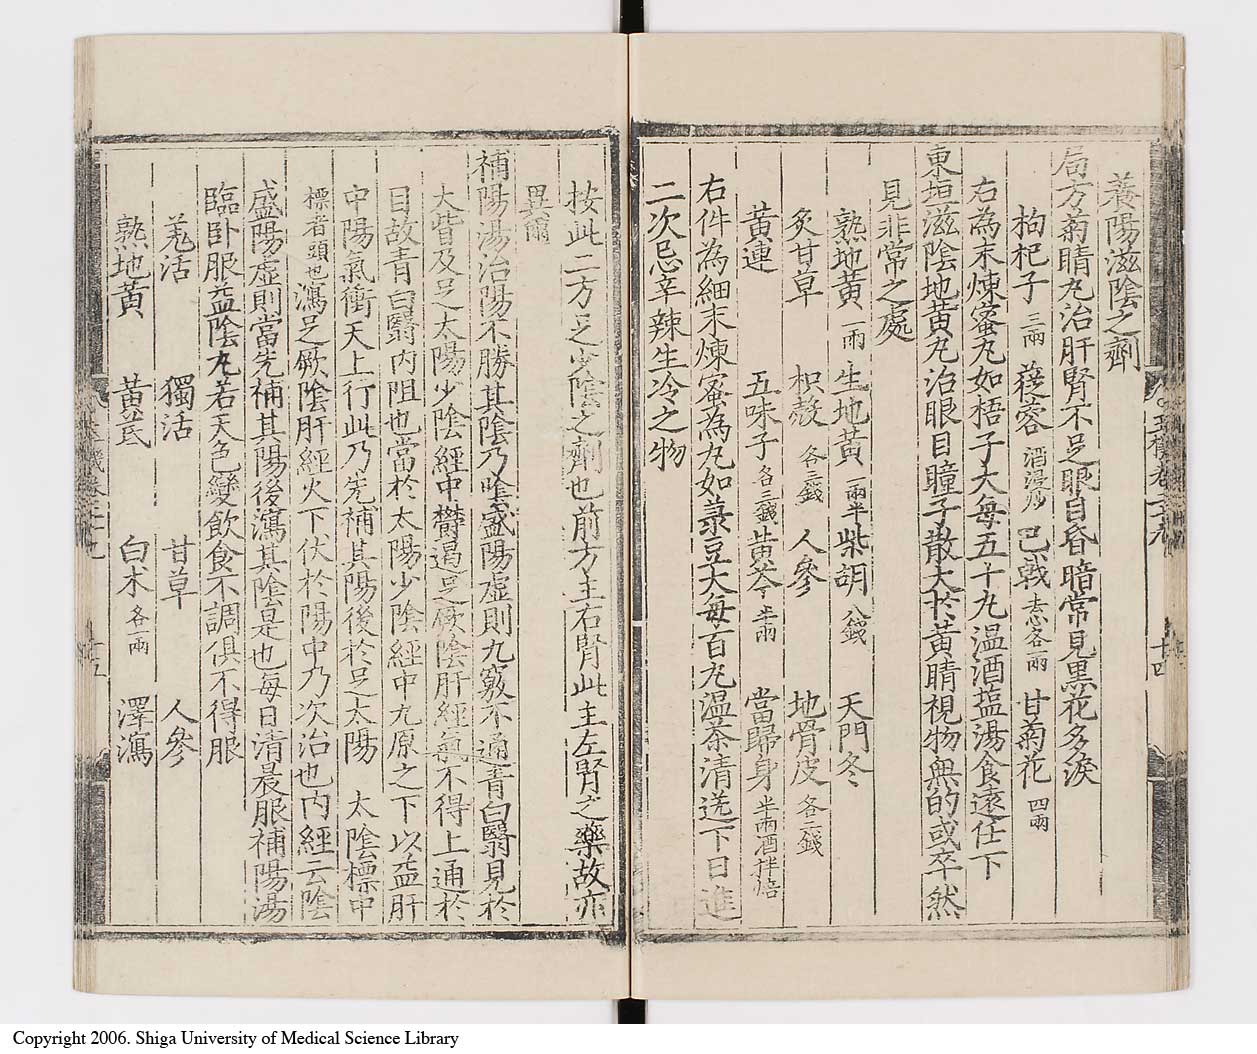 養陽滋陰之劑
局方菊睛丸治肝腎不足眼目昏暗常見黑花多淚
枸杞子三兩 蓯蓉酒浸炒 巴戟去心各一兩 甘菊花四兩
右為末煉蜜丸如梧子大每五十丸溫酒盐湯食遠任下
東垣滋陰地黃丸治眼目瞳子散大於黃睛視物無的或卒然
見非常之處
熟地黃一兩 生地黃一兩半 柴胡八錢 天門冬
炙甘草 枳殼各三錢 人參 地骨皮各二錢
黃連 五味子各三錢 黃芩半兩 當歸身半兩酒拌焙
右件為細末煉蜜為丸如菉豆大每百丸溫茶清送下日進
二次忌辛辣生冷之物
玉機卷之二十九 十四
按此二方足少陰之劑也前方主右腎此主左腎之藥故亦
異爾
補陽湯治陽不勝其陰乃陰盛陽虛則九竅不通青白翳見於
大眥及足太陽少陰經中鬱遏足厥陰肝經氣不得上通於
目故青白翳內阻也當於太陽少陰經中九原之下以益肝
中陽氣衝天上行此乃先補其陽後於足太陽 太陰標中
標者頭也瀉足厥陰肝經火下伏於陽中乃次治也內經云陰
盛陽虛則當先補其陽後瀉其陰是也每日清晨服補陽湯
臨卧服益陰丸若天色變飲食不調俱不得服
羌活 獨活 甘草 人參
熟地黃 黃芪 白朮各一兩 澤瀉
十五
Copyright 2006. Shiga University of Medical Science Library